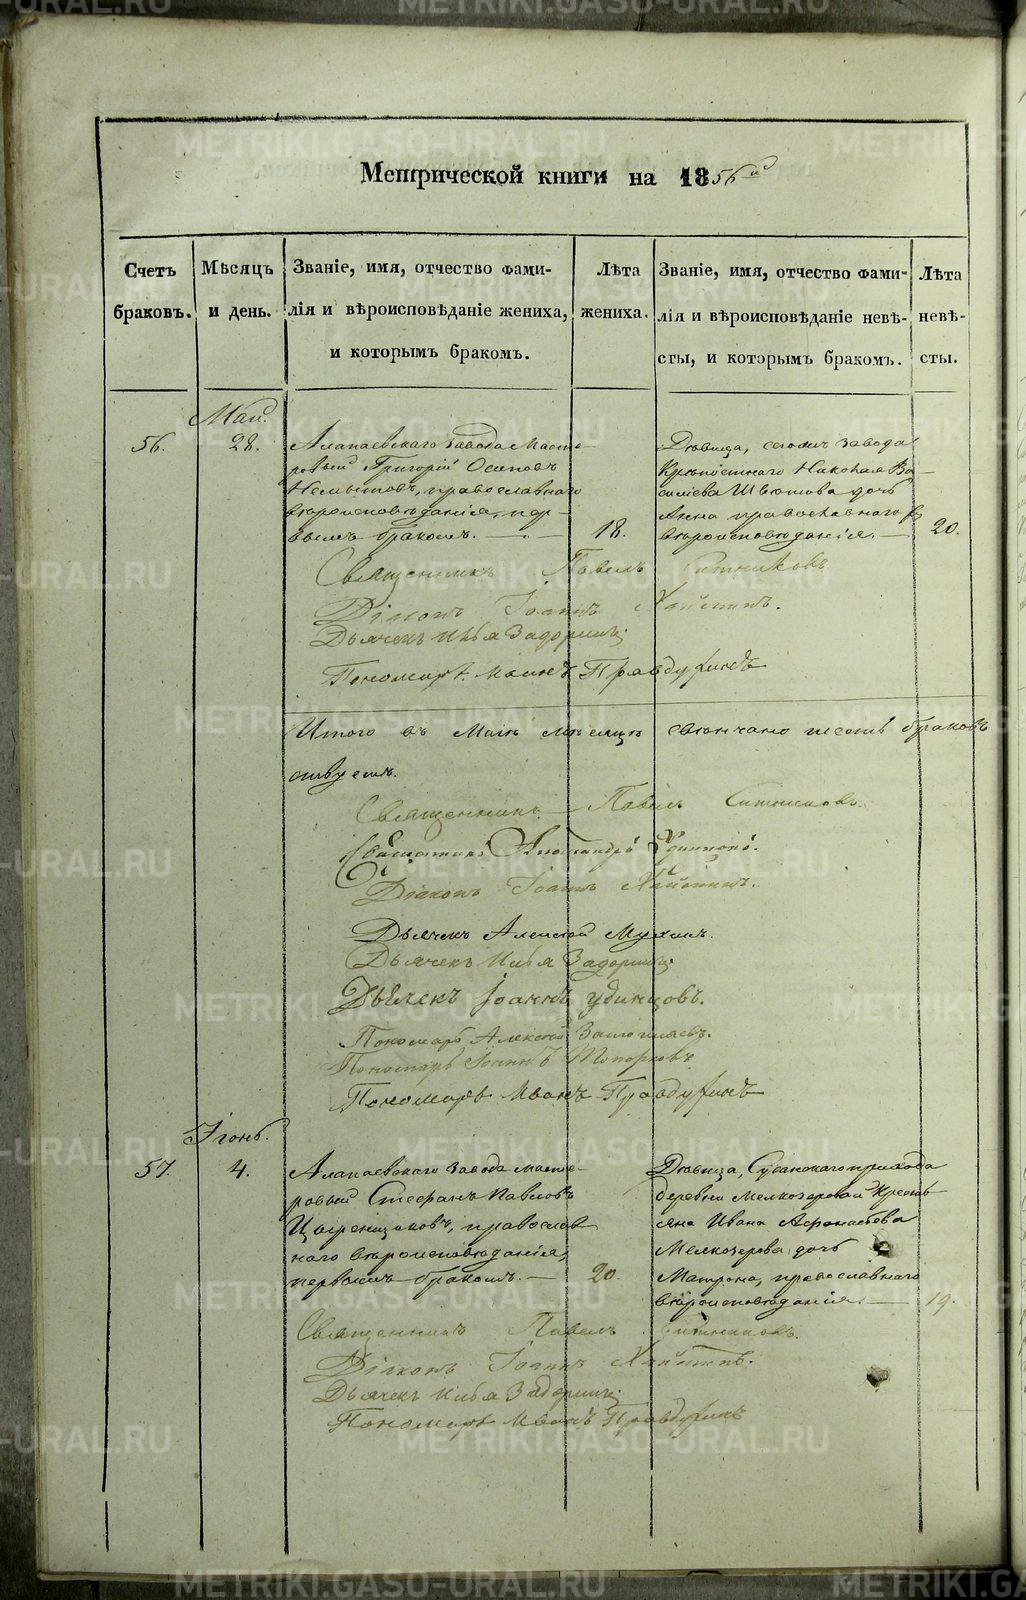 METRIKI.GASO-URAL.RU
Метрической книги на 1856й
Счетъ браковъ.
Мѣсяцъ и день.
Званіе, имя, отчество фами-
лія и вѣроисповѣданіе жениха,
и которымъ бракомъ.
Лѣта
жениха.
Званіе, имя, отчество фами-
лія и вѣроисповѣданіе невѣ-
сты, и которымъ бракомъ.
Лѣта
невѣ-
сты.
Май.
56.
28.
Алапаевскаго Завода Масте-
ровый Григорій Осиповъ
православнаго
вѣроисповѣданія, пер-
вымъ бракомъ.
18.
Дѣвица, сегожъ завода
Крѣпостнаго Николая Ва-
сильева дочь
Анна православнаго
вѣроисповѣданія.
20.
Священникъ Павелъ Ситниковъ
Діаконъ Іоаннъ
Дьячекъ Илья Задоринъ
Пономарь Иванъ Правдухинъ
Итого въ Маѣ мѣсяцѣ свѣнчано шесть браковъ
Священникъ Павелъ Ситниковъ.
Священникъ Александръ Удинцовъ.
Діаконъ Іоаннъ
Дьячекъ Алексѣй Мухинъ.
Дьячекъ Илья Задоринъ
Дьячекъ Іоаннъ Удинцовъ.
Пономарь Алексѣй
Пономарь Іоаннъ Топорковъ
Пономарь Иванъ Правдухинъ
Іюнь.
57.
4.
Алапаевскаго Завода масте-
ровый Стефанъ Павловъ
православ-
наго вѣроисповѣданія,
первымъ бракомъ.
20.
Дѣвица, Сусанскаго прихода
деревни Мелкозеровой Кресть-
яна Ивана Афонасьева
Мелкозерова дочь
Матрона, православнаго
вѣроисповѣданія.
19.
Священникъ Павелъ Ситниковъ.
Діаконъ Іоаннъ
Дьячекъ Илья Задоринъ
Пономарь Иванъ Правдухинъ